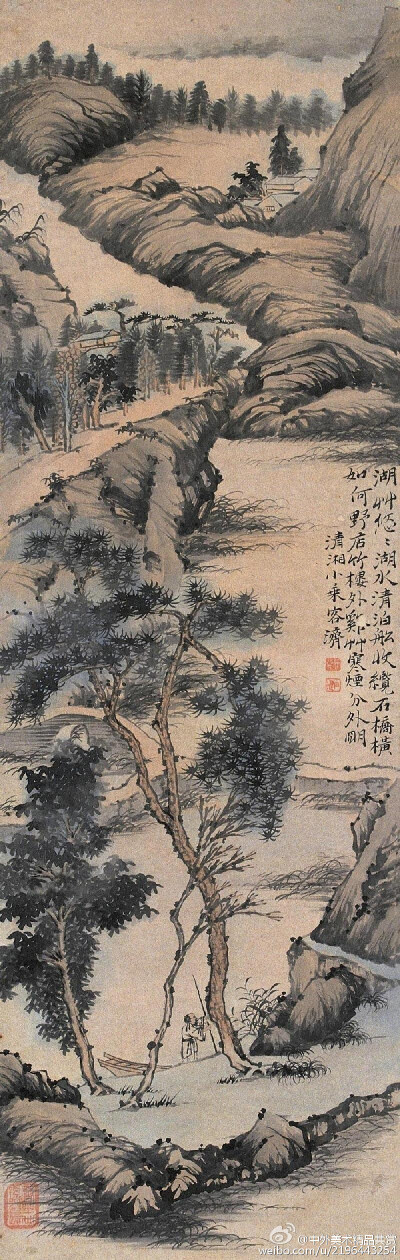 湖艸傞〻湖水清泊船收纜石橋橫
如何野店竹樓外豀艸寒煙分外明
清湘小乘客濟
@中外美术精品共赏
weibo.com/u/2196443254